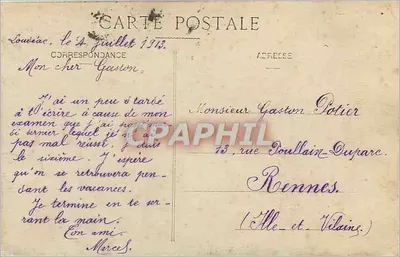 CARTE POSTALE
Loudéac, le 4 Juillet 1913.
CORRESPONDANCE
ADRESSE
Mon cher Gaston.
J'ai un peu tardé
à t'écrire à cause de mon
examen que j'ai
dernier lequel j'ai
pas mal réussi. Je suis
le sixième. J'espère
qu'on se retrouvera pen-
sant les vacances.
Je termine en te ser-
rant la main.
Ton ami.
Marcel.
Monsieur Gaston Potier
13, rue Poullain-Duparc.
Rennes.
(Ille-et-Vilaine)
CPAPHIL